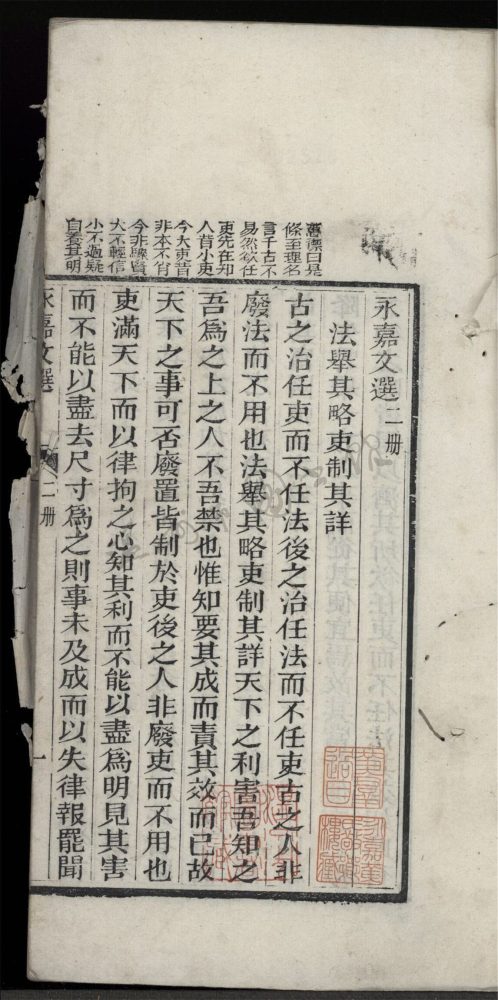 永嘉文選二册
法舉其略吏制其詳
古之治任吏而不任法後之治任法而不任吏古之人非
廢法而不用也法舉其略吏制其詳天下之利害吾知之
吾爲之上之人不吾禁也惟知要其成而責其效而已故
天下之事可否廢置皆制於吏後之人非廢吏而不用也
吏滿天下而以律拘之心知其利而不能以盡爲明見其害
而不能以盡去尺寸爲之則事未及成而以失律報罷聞
永嘉文選
二册
一
曰是
條至理名
言千古不
易然欲任
吏先在知
人昔小吏
今大吏昔
非本不肖
今非驟賢
大不輕信
小不過疑
自養其明